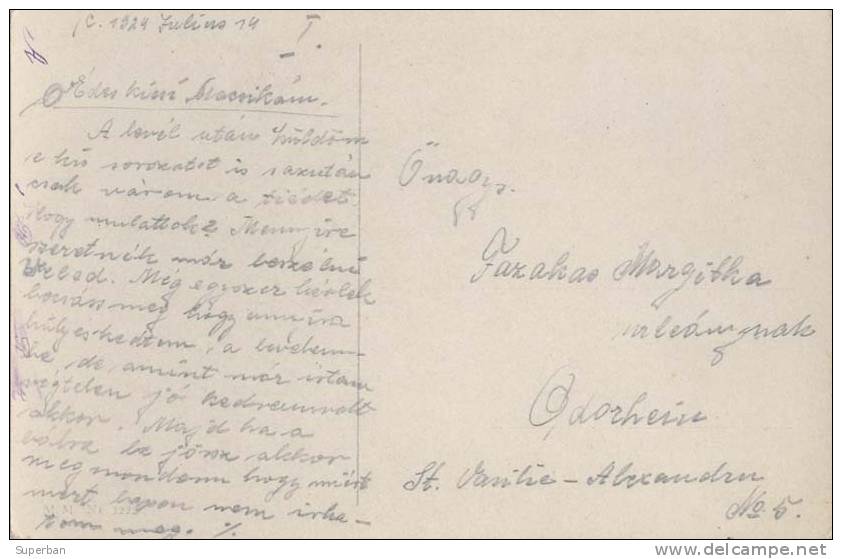 1924 Julius 14
I.
Édes kicsi Macsikám.
A levél után küldöm
e kis sorozatot is s azután
csak várom a tiédet.
Hogy mulattok? Mennyire
szeretnék már beszélni
Veled. Még egyszer kérlek
bocsáss meg hogy annyira
hülyeskedtem, a levelem-
be, de amint már írtam
végtelen jó kedvem volt
akkor. Majd ha a
be jössz akkor
megmondom hogy miért
mert lapon nem írha-
tom meg. %
M. M. Nr.
Önagys.
Fazakas Margitka
urleánynak
Odorheiu
St. Vasilie - Alexandru
No 5.
Superban
www.delcampe.net